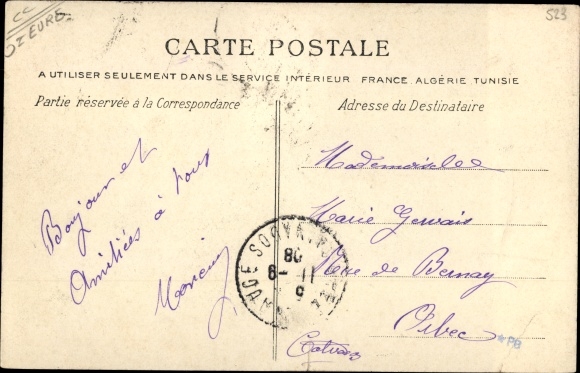 CC
27 EURE
523
CARTE POSTALE
A UTILISER SEULEMENT DANS LE SERVICE INTÉRIEUR FRANCE, ALGÉRIE, TUNISIE
Partie réservée à la Correspondance
Adresse du Destinataire
Bonjour et
Amitiées à tous
Mademoiselle
Marie Gervais
Rue de Bernay
Orbec
Calvados